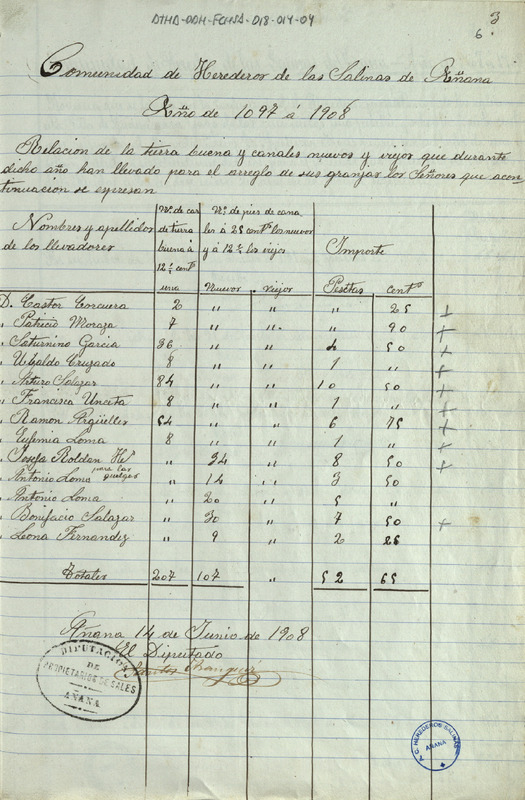 ATHA-DAH-FCHSA-018-014-04
3
6.
Comunidad de Herederos de las Salinas de Añana
Año de 1097 á 1908
Relacion de la tierra buena y canales nuevos y viejos que durante
dicho año han llevado para el arreglo de sus granjas los Señores que acon-
tinuacion se espresan
Nombres y apellidos de los llevadores | Nº. de car de tierra buena á 12 ½ centº una | Nº. de pies de cana les á 25 centº los nuevos y á 12 ½ los viejos | Importe
Nuevos | Viejos | Pesetas | centº
D. Castor Corcuera 2 " " " 25 +
" Patricio Moraza 7 " " " 90 +
" Saturnino Garcia 36 " " 4 50 +
" Ubaldo Cruzado 8 " " 1 " +
" Arturo Salazar 84 " " 10 50 +
" Francisca Unceta 8 " " 1 " +
" Ramon Argüelles 54 " " 6 75 +
" Eufemia Loma 8 " " 1 " +
" Josefa Roldan Hº " 34 " 8 50 +
" Antonio Loma para las " 14 " 3 50
" Antonio Loma " 20 " 5 "
" Bonifacio Salazar " 30 " 7 50 +
" Leona Fernandez " 9 " 2 25
Totales 207 107 " 52 65
Añana 14 de Junio de 1908
El Diputado
DIPUTACION
DE
PROPIETARIOS DE SALES
AÑANA
C. HEREDEROS SALINAS
AÑANA